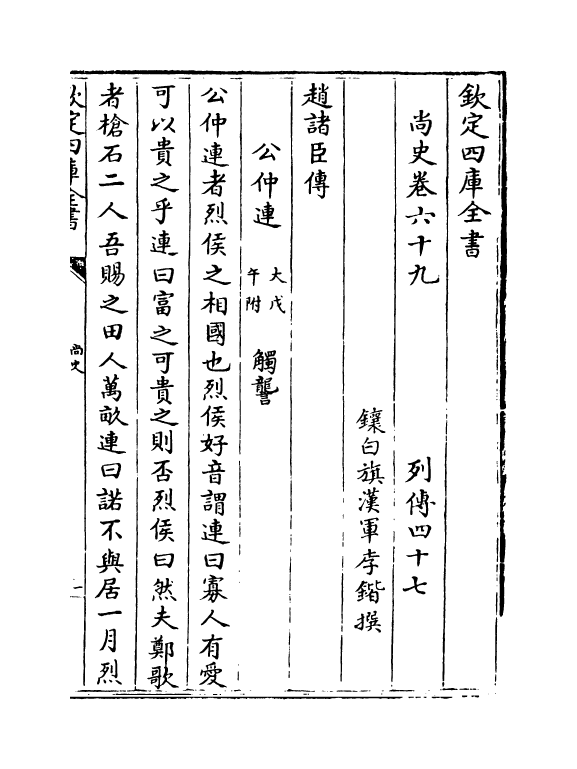 欽定四庫全書
尚史卷六十九 列傳四十七
鑲白旗漢軍李鍇撰
趙諸臣傳
公仲連 大戊午附 觸龍言
公仲連者烈侯之相國也烈侯好音謂連曰寡人有愛
可以貴之乎連曰富之可貴之則否烈侯曰然夫鄭歌
者槍石二人吾賜之田人萬畝連曰諾不與居一月烈
欽定四庫全書
尚史
一